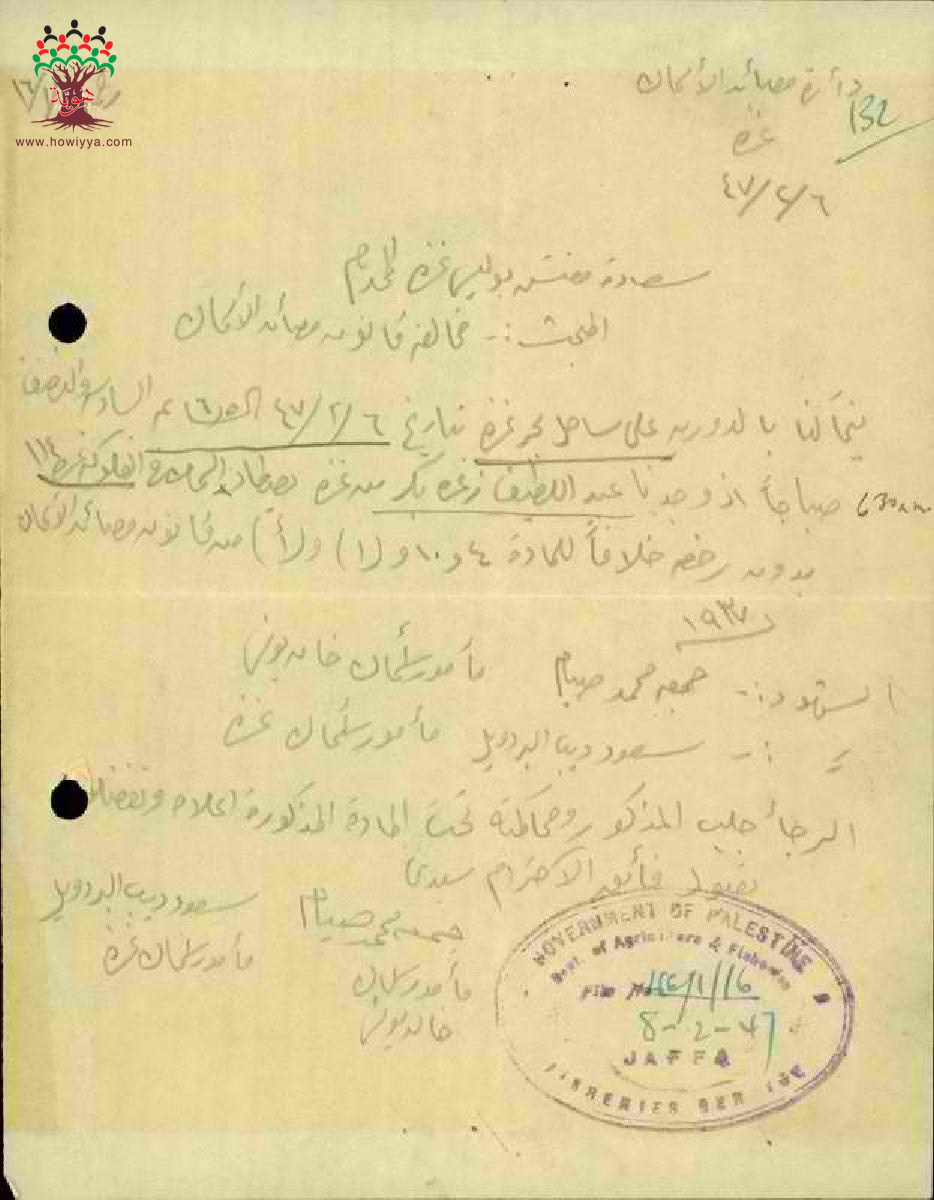 هوية
www.howiyya.com
دائرة مصائد الأسماك
132
غزة
٤٧/٢/٦
سعادة مفتش بوليس غزة المحترم
المبحث :- مخالفة قانون مصائد الأسماك
بينما كنا بالدورية على ساحل بحر غزة بتاريخ ٤٧/٢/٦ الساعة السادسة والنصف
630 a.m. صباحاً اذ وجدنا عبد اللطيف بكر من غزة يصطاد السمك في الفلوكة غزة ١١٤
بدون رخصه خلافاً للمادة ٤ و ١٠ و (١) و (أ) من قانون مصائد الأسماك
١٩٣٧
الشهود :- جمعه محمد صيام مأمور أسماك خانيونس
:- سعود ديب البردويل مأمور أسماك غزة
الرجا جلب المذكور ومحاكمته تحت المادة المذكورة اعلاه وتفضلوا
بقبول فائق الاحترام سيدي
جمعه محمد صيام سعود ديب البردويل
مأمور أسماك مأمور أسماك غزة
خانيونس
GOVERNMENT OF PALESTINE
Dept. of Agriculture & Fisheries
File No. /1/16
8-2-47
JAFFA
FISHERIES SERVICE